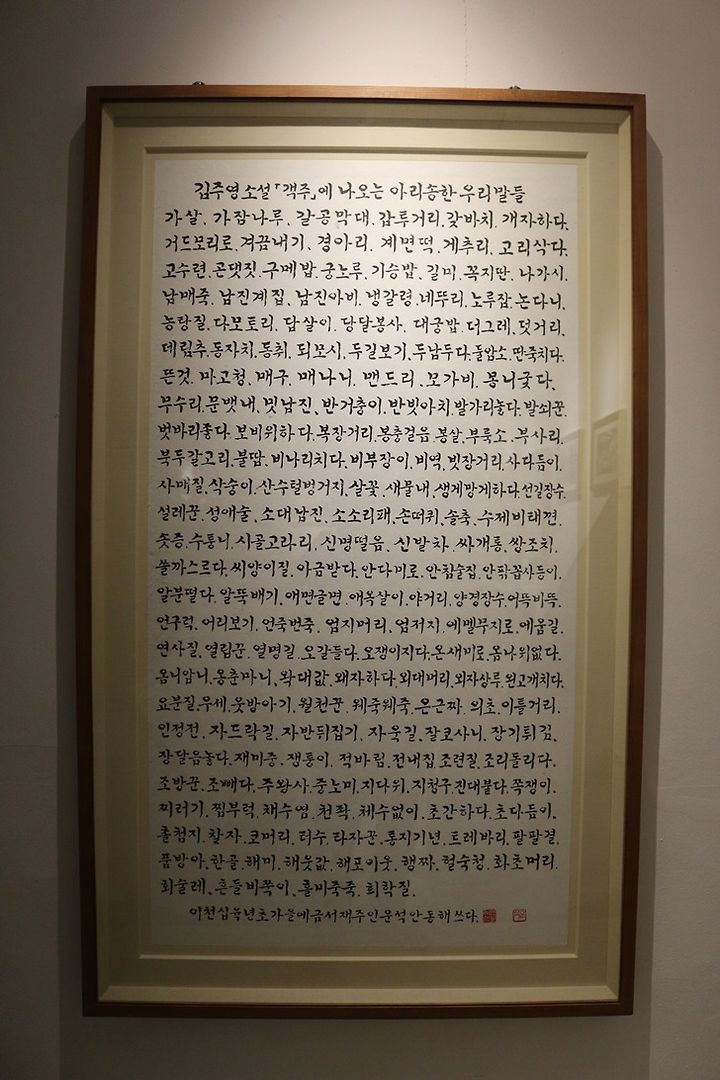 김주영 소설 「객주」에 나오는 아리송한 우리말들
가살. 가잠나루. 갈공막대. 갑투거리. 갖바치. 개자하다.
거드모리로. 겨끔내기. 경아리. 계면떡. 계추리. 고리삭다.
고수련. 곤댓짓. 구메밥. 궁노루. 기승밥. 길미. 꼭지딴. 나가시.
남매죽. 남진계집. 남진아비. 냉갈령. 네뚜리. 노루잠. 논다니.
농탕질. 다모토리. 담살이. 당달봉사. 대궁밥. 더그레. 덧거리.
데림추. 동자치. 동취. 되모시. 두길보기. 두남두다. 둘암소. 딴죽치다.
뜬것. 마고청. 매구. 매나니. 맨드리. 모가비. 몽니궂다.
무수리. 문뱃내. 밋남진. 반거충이. 반빗아치. 발가리놓다. 발쇠꾼.
벗바리좋다. 보비위하다. 복장거리. 봉충걸음. 봉살. 부룩소. 부사리.
북두갈고리. 불땁. 비나리치다. 비부장이. 비역. 빗장거리. 사다듬이.
사매질. 삭숭이. 산수털벙거지. 살꽃. 새물내. 생게망게하다. 선길장수.
설레꾼. 성애술. 소대남진. 소소리패. 손떠퀴. 솔축. 수제비태껸.
솟증. 수통니. 시골고라리. 신명떨음. 신발차. 싸개통. 쌍조치.
쓸까스르다. 씨양이질. 아금받다. 안다미로. 안침술집. 안팎꼽사등이.
알분떨다. 알뚝배기. 애면글면. 애옥살이. 야거리. 양경장수. 어뜩비뜩.
언구럭. 어리보기. 언죽번죽. 엄지머리. 업저지. 에멜무지로. 에움길.
연사질. 열립꾼. 열명길. 오갈들다. 오쟁이지다. 온새미로. 옴나위없다.
옴니암니. 옹춘마니. 왁대값. 왜자하다. 외대머리. 외자상투. 왼고개치다.
요분질. 우세. 웃방아기. 월천꾼. 웨죽웨죽. 은근짜. 의초. 이틀거리.
인정전. 자드락길. 자반뒤집기. 자욱길. 잘코사니. 장기튀김.
장달음놓다. 재미중. 쟁퉁이. 적바림. 전내집. 조련질. 조리돌리다.
조방꾼. 조빼다. 주왕사. 중노미. 지다위. 지청구. 진대붙다. 쪽쟁이.
찌러기. 찜부럭. 채수염. 천좍. 체수없이. 초간하다. 초다듬이.
촐첨지. 찰자. 코머리. 터수. 타자꾼. 통지기년. 트레바리. 팔팔결.
품방아. 한골. 해미. 해웃값. 해포이웃. 행짜. 헐숙청. 화초머리.
회술레. 흔들비쭉이. 흘미죽죽. 희학질.
이천십육년 초가을에 금서재주인 운석 안동해 쓰다.